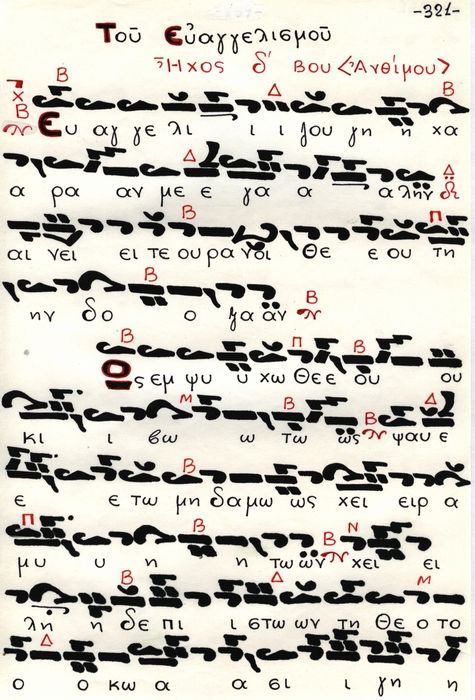 -321-
Τοῦ Εὐαγγελισμοῦ
Ἦχος δ΄ Βου <Ἀνθίμου>
Χ Β Δ Β
Β Ευ αγ γε λι ι ι ζου γη η χα
Δ Δ
α ρα αν με ε γα α α λην δι
Β Π
αι νει ει τε ου ρα νοι Θε ε ου τη
Β
ην δο ο ξα αν Β
Β Π Β
Ος εμ ψυ υ χω Θε ε ου ου
Μ Β Β Δ
κι ι βω ω τω ως ψαυ ε
Β
ε ε τω μη δα μω ως χει ει ρ α
Π Β Β Ν
μυ υ η η τω ων χει ει
Β Δ Μ
λη η δε πι ι στω ων τη Θε ο το
Δ
ο ο κω α α σι ι γη η